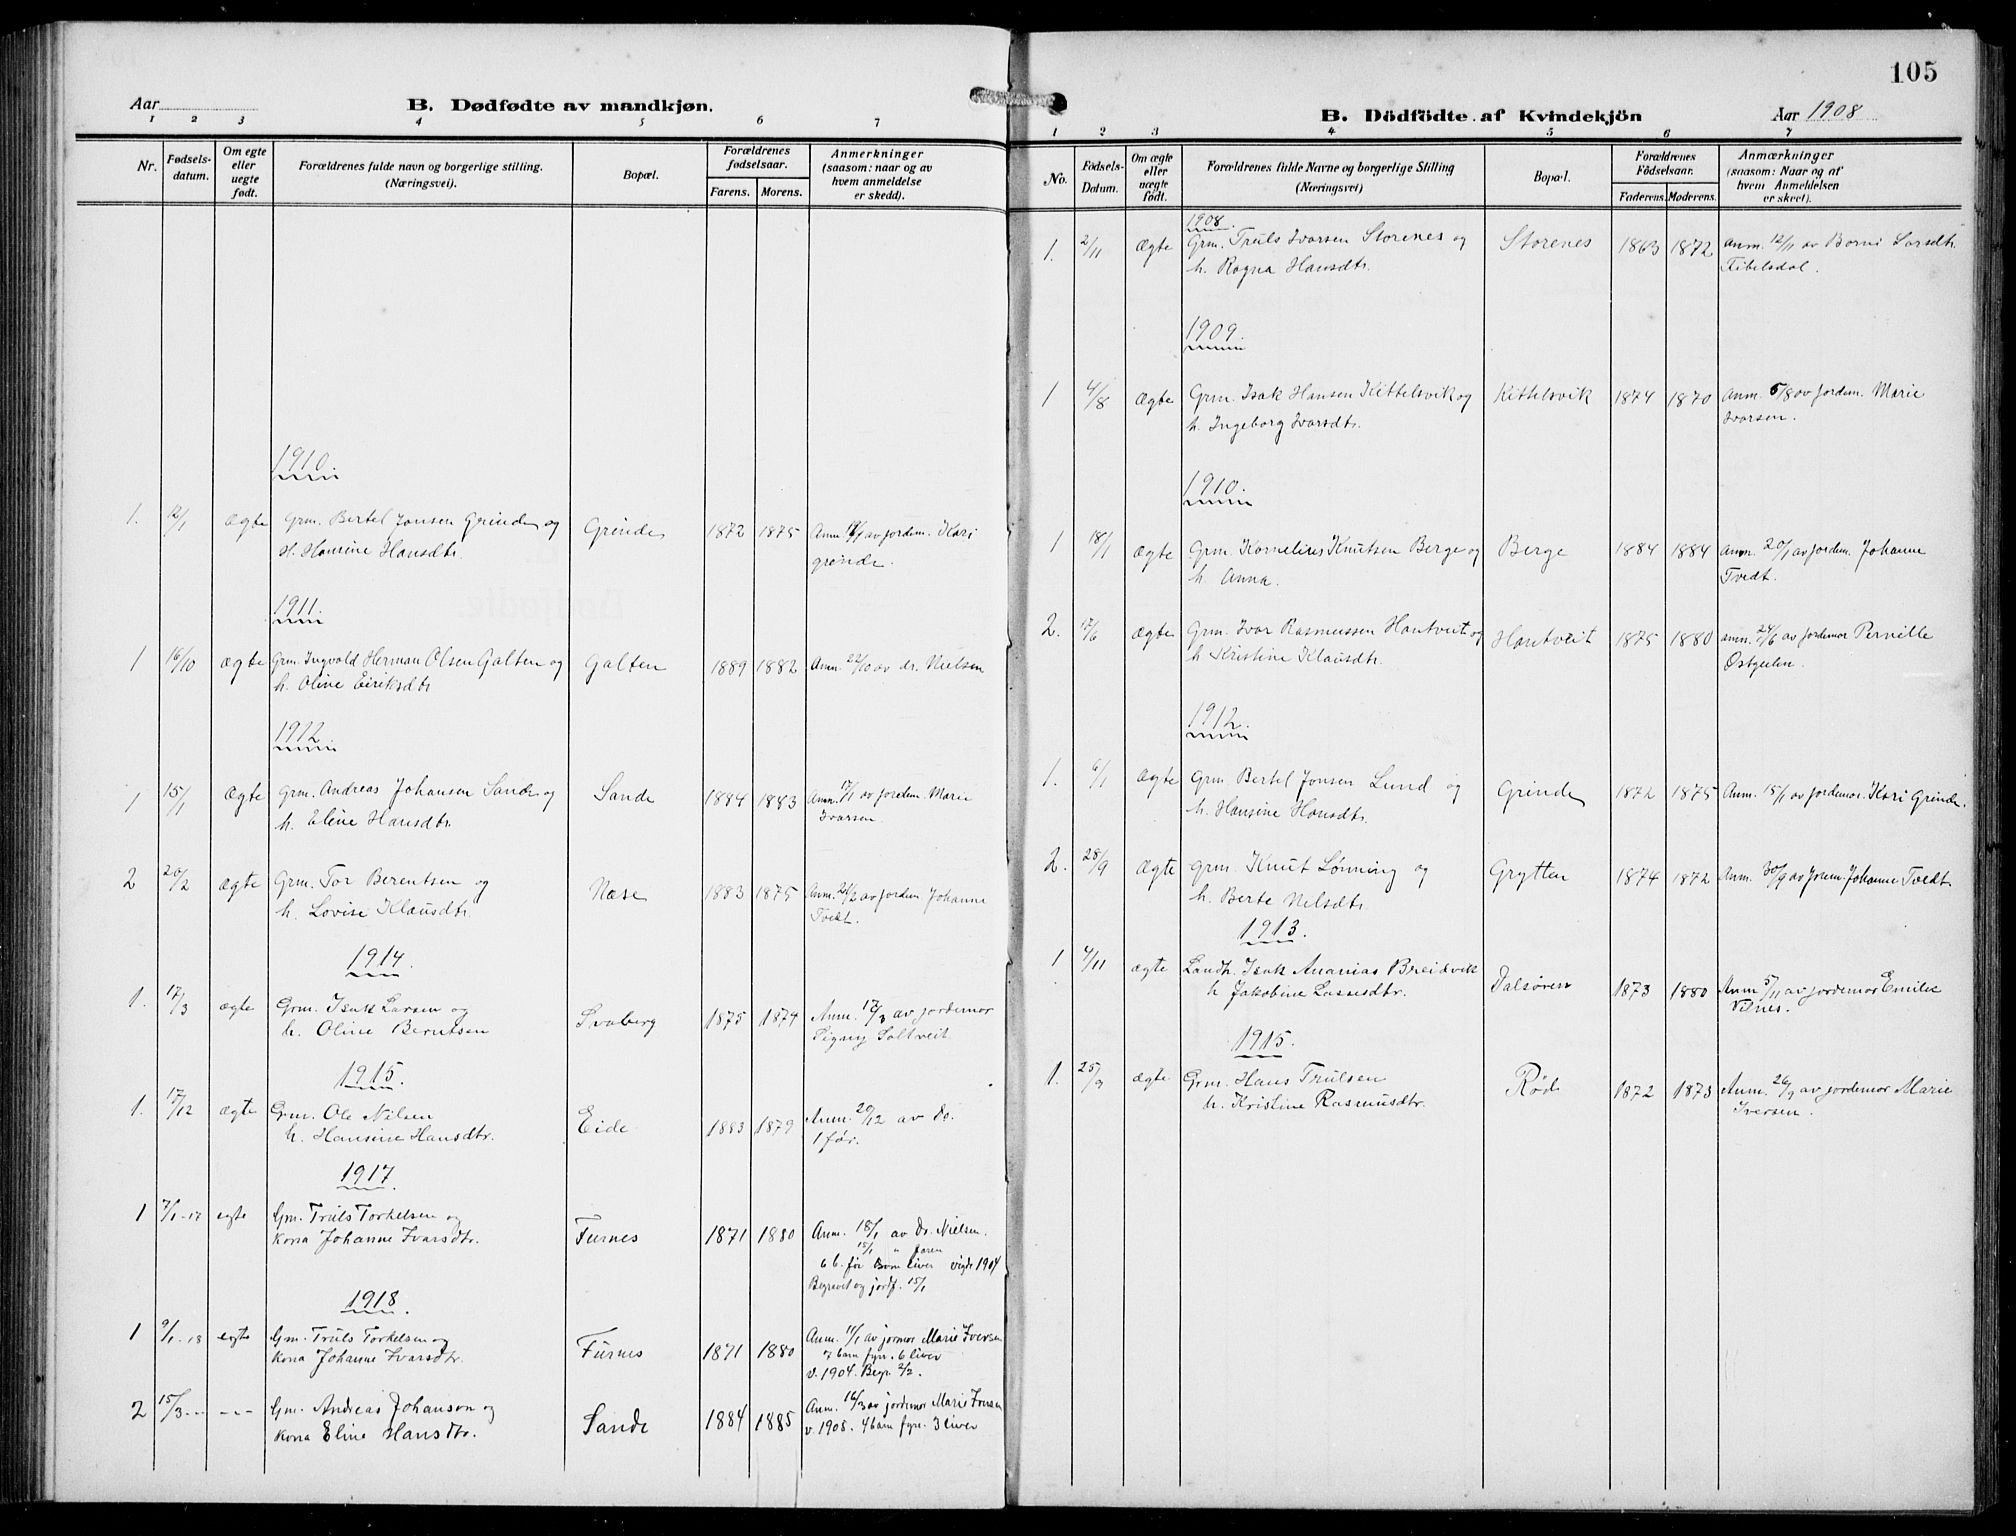 Aar
B. Dødfødte av mandkjøn.
1 2 3 4 5 6 7
Nr. Fødsels-datum. Om egte eller uegte født. Forældrenes fulde navn og borgerlige stilling. (Næringsvei). Bopæl. Forældrenes fødselsaar. Farens. Morens. Anmerkninger (saasom: naar og av hvem anmeldelse er skedd).
1910.
1. 12/1 Ægte Grm. Bertel Jonsen Grinde og Grinde 1872 1875 Anm. av jordem. Kari
H. Hansine Hansdtr. grinde.
1911.
1 16/10 Ægte Grm. Ingvald Herman Olsen Galten og Galten 1889 1882 Anm. 22/10 av dr. Nielsen
h. Oline Eiriksdtr
1912
1 15/1 Ægte Grm. Andreas Johansen Sande og Sande 1884 1883 Anm. 17/1 av jordem. Marie
h. Eline Hansdtr. Ivarsen.
2 20/2 Ægte Grm. Tor Berentsen og Næse 1883 1875 Anm. 21/2 av jordem. Johanne
h. Lovise Klausdtr. Tvedt.
1914.
1. 17/3 ægte Grm. Isak Larsen og Svaberg 1875 1874 Anm. 17/3 av jordemor
h. Oline Berntsen Signy Saltveit.
1915.
1. 17/12 ægte Grm. Ole Nilsen Eide 1883 1879 Anm. 20/12 av Do.
h. Hansine Hansdtr. 1 før.
1917.
1 7/1-17 egte Gm. Truls Torkelsen og Furnes 1871 1880 Anm. 18/1 av Dr. Nielsen.
kona Johanne Ivarsdtr. 15/1 " faren
6 b. før 5 liver vigde 1904
Begravet og jordf. 15/1
1918.
1 9/1-18 egte Gm. Truls Torkelsen og Furnes 1871 1880 Anm. 11/1 av jormor Marie Iversen
kona Johanne Ivarsdtr. 7 barn fyrr. 6 liver
v. 1904. Begr. 2/2.
2 15/3 --- --- Gm. Andreas Johanson og Sande 1884 1885 Anm. 16/3 av jordemor Marie Iversen
kona Eline Hansdtr. v. 1908. 4 barn fyrr. 3 liver
105
B. Dödfödte af Kvindekjön
Aar 1908
1 2 3 4 5 6 7
No. Födsels-Datum. Om ægte eller uægte födt. Forældrenes fulde Navne og borgerlige Stilling (Næringsvei) Bopæl. Forældrenes Födselsaar. Faderens. Moderens. Anmærkninger (saasom: Naar og af hvem Anmeldelsen er skeet).
1908.
1. 2/11 Ægte Grm. Truls Ivarsen Storenes og Storenes 1863 1872 Anm. 12/11 av Larsdtr.
h. Ragna Hansdtr. Fibelsdal.
1909.
1 4/8 Ægte Grm. Isak Hansen Kittelsvik og Kittelsvik 1874 1870 Anm. 5/8 av jordem. Marie
h. Ingeborg Ivarsdtr. Ivarsen.
1910.
1 18/1 Ægte Grm. Kornelius Knutsen Berge og Berge 1884 1884 Anm. 20/1 av jordem. Johanne
h. Anna. Tvedt.
2. 17/6 Ægte Grm. Ivar Rasmussen Hantveit og Hantveit 1875 1880 anm. 24/6 av jordemor Pernille
h Kristine Klausdtr. Østgulen.
1912.
1. 6/1 Ægte Grm. Bertel Jonsen Lund og Grinde 1872 1875 Anm. 15/1 av jordemor. Kari Grinde.
h. Hansine Hansdtr.
2. 28/9 Ægte Grm. Knut Lønning og Grytten 1874 1872 Anm. 30/9 av Jorem. Johanne Tvedt
h. Berte Nelsdtr.
1913.
1 4/11 ægte Landh. Isak Ananias Breidvik Dalsøren 1873 1880 Anm 5/11 av jordemor Emilie
h Jakobine Lassesdtr. Vilnes.
1915.
1. 25/9 ægte Grm. Hans Trulsen Rød 1872 1873 Anm. 26/9 av jordemor Marie
h. Kristine Rasmusdtr. Iversen.